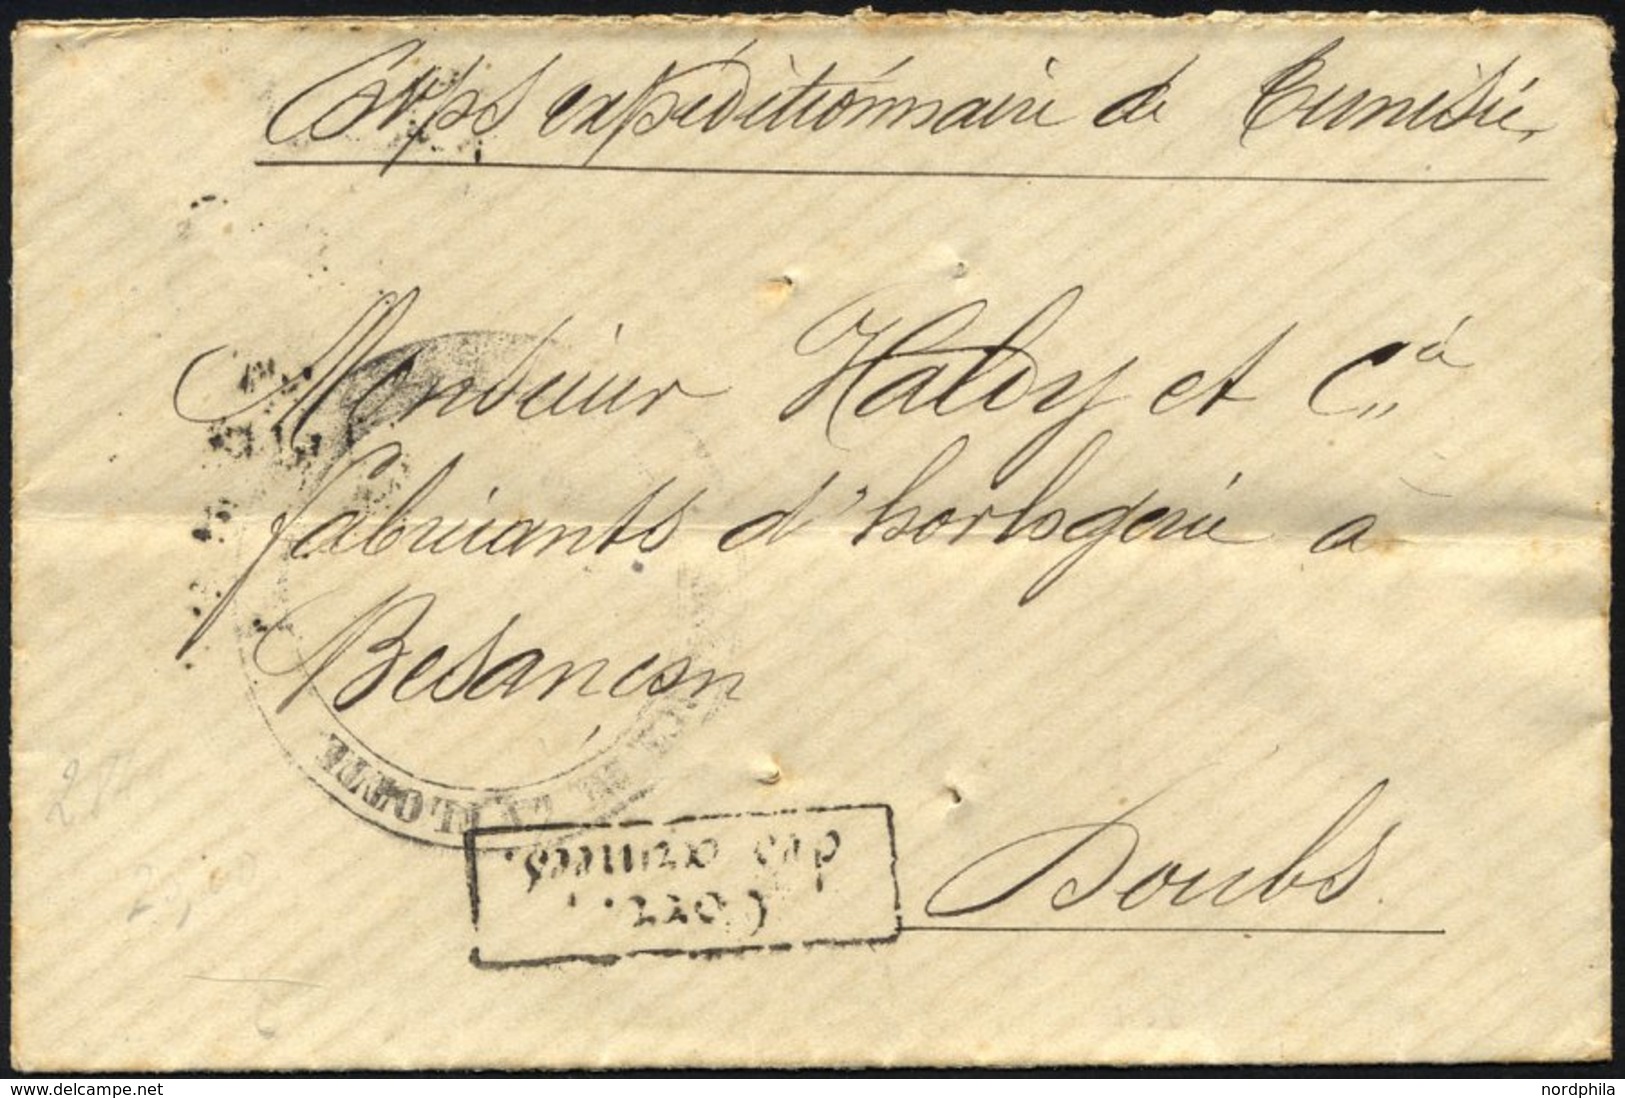 Corps expéditionnaire de Tunisie
Monsieur Haldy et Cie
fabricants d'horlogerie à
Besançon
Doubs
Corr.
des armées.
DE LA GOULETTE
284
20,00
delcampe.net
nordphila